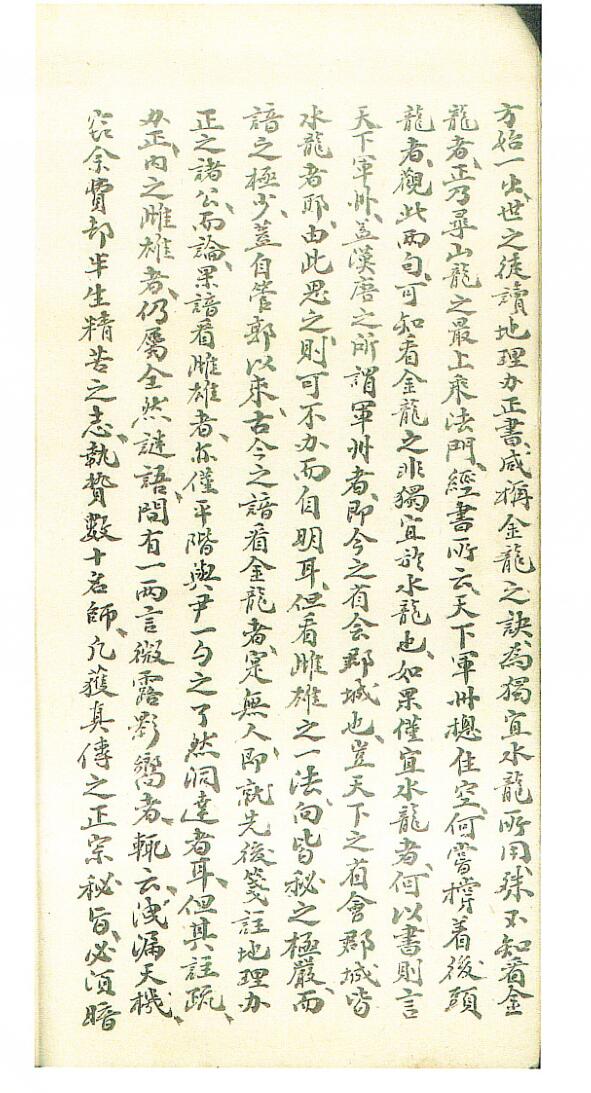 方始一出、世之徒讀地理办正書、咸稱金龍之訣為獨宜水龍所用殊不知看金
龍者、正乃尋山龍之最上乘法門、經書所云、天下軍州總住空、何嘗撐着後頭
龍者、觀此两句、可知看金龍之非獨宜於水龍也、如果僅宜水龍者、何以書則言
天下軍州、盖漢唐之所謂軍州者、即今之省会郡城也、豈天下之省會郡城皆
水龍者耶、由此思之、則可不办而自明耳、但看雌雄之一法、向皆秘之極嚴、而
諳之極少、蓋自管郭以来、古今之諳看金龍者、寔無人、即就先後箋註地理办
正之諸公、而論、果諳看雌雄者、亦僅平階與尹一勺之了然洞達者耳、但其註疏、
办正、内之雌雄者、仍屬全然謎語、間有一两言微露影嚮者、輒云洩漏天機、
余費却半生精苦之志、執贄數十名師、凢獲真傳之正宗秘旨、必須暗